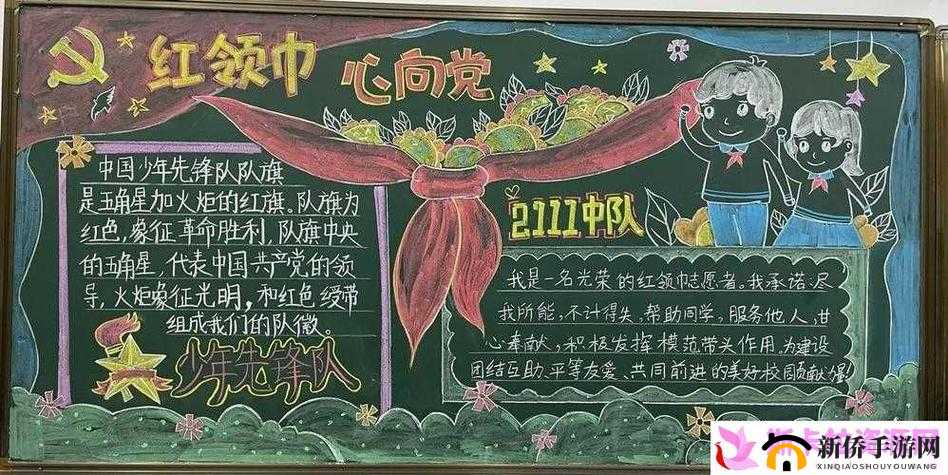 红领巾 心向党
中国少年先锋队队旗
是五角星加火炬的红旗。队旗为
红色,象征革命胜利,队旗中央
的五角星,代表中国共产党的领
导,火炬象征光明,和红色绶带
组成我们的队徽。
少年先锋队
2111中队
我是一名光荣的红领巾志愿者。我承诺:尽
我所能,不计得失,帮助同学,服务他人,甘
心奉献,积极发挥模范带头作用。为建设
团结互助、平等友爱、共同前进的美好校园贡献
新侨手游网
XINQIAOSHOUYOUWANG